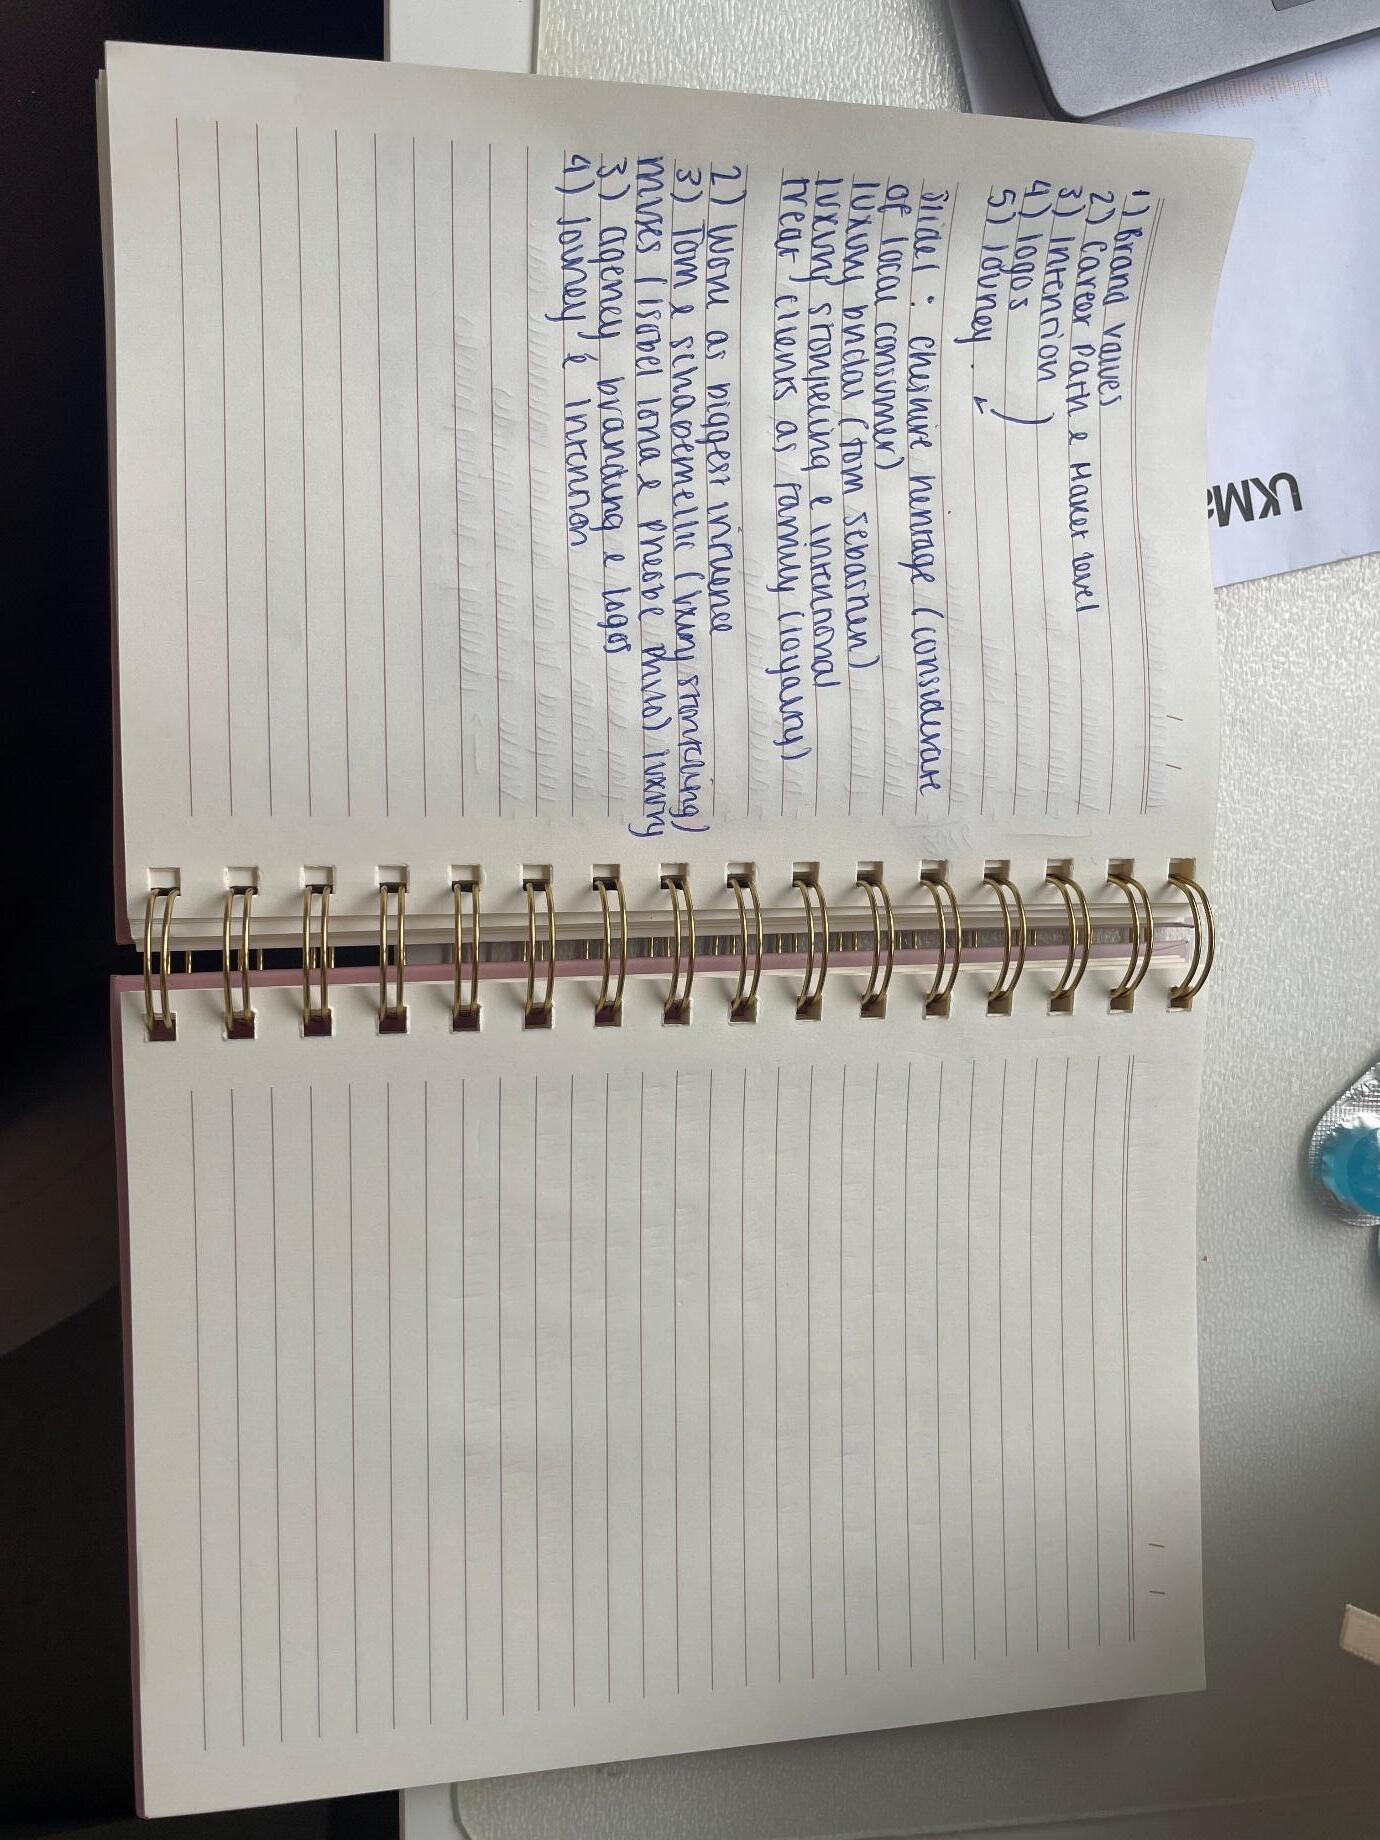 1) Brand values
2) Career Path & Maker level
3) Intention )
4) logos
5) Journey .
Slide 1 : cheshire heritage (considerate
of local consumer)
luxury bridal (tom sebastien)
luxury storytelling & intentional
treat clients as family (loyalty)
2) Work as biggest influence
3) Tom & schaperellie (luxury storytelling)
muses (Isabel lona & phoebe philo) luxury
3) agency branding & logos
4) Journey & Intention
UKMa